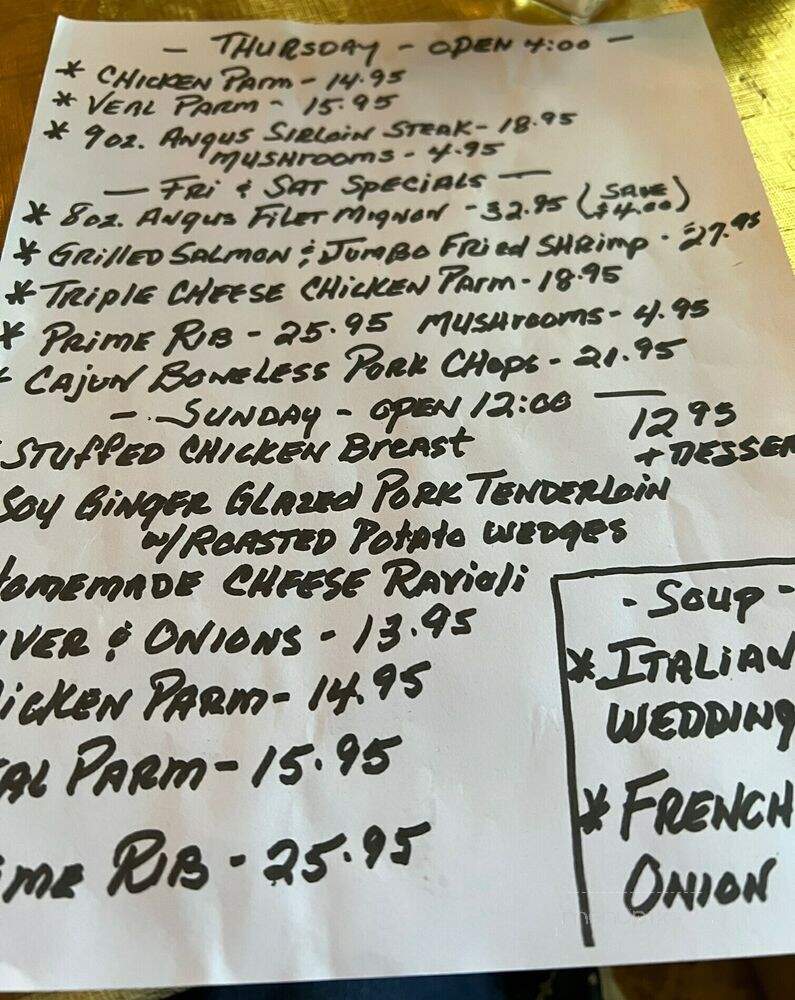 - THURSDAY - OPEN 4:00 -
* CHICKEN PARM - 14.95
* VEAL PARM - 15.95
* 9oz. ANGUS SIRLOIN STEAK - 18.95
MUSHROOMS - 4.95
- FRI & SAT SPECIALS -
* 8oz. ANGUS FILET MIGNON - 32.95 (SAVE $4.00)
* GRILLED SALMON & JUMBO FRIED SHRIMP - 27.95
* TRIPLE CHEESE CHICKEN PARM - 18.95
* PRIME RIB - 25.95 MUSHROOMS - 4.95
* CAJUN BONELESS PORK CHOPS - 21.95
- SUNDAY - OPEN 12:00 -
STUFFED CHICKEN BREAST
12.95
+ DESSER
SOY GINGER GLAZED PORK TENDERLOIN
W/ ROASTED POTATO WEDGES
OMEMADE CHEESE RAVIOLI
IVER & ONIONS - 13.95
ICKEN PARM - 14.95
AL PARM - 15.95
IME RIB - 25.95
- SOUP -
* ITALIAN
WEDDING
* FRENCH
ONION